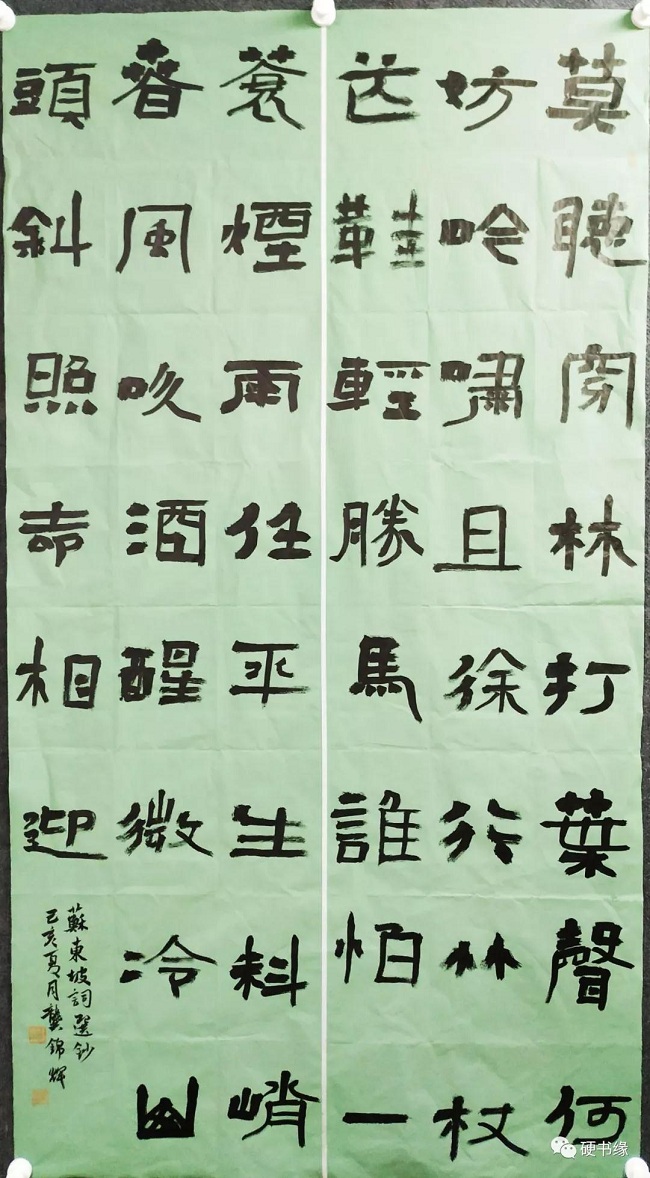 莫聽穿林打葉聲何
妨吟嘯且徐行竹杖
芒鞋輕勝馬誰怕一
蓑煙雨任平生料峭
春風吹酒醒微冷山
頭斜照却相迎
蘇東坡詞選鈔
己亥夏月龔錦輝
硬书缘